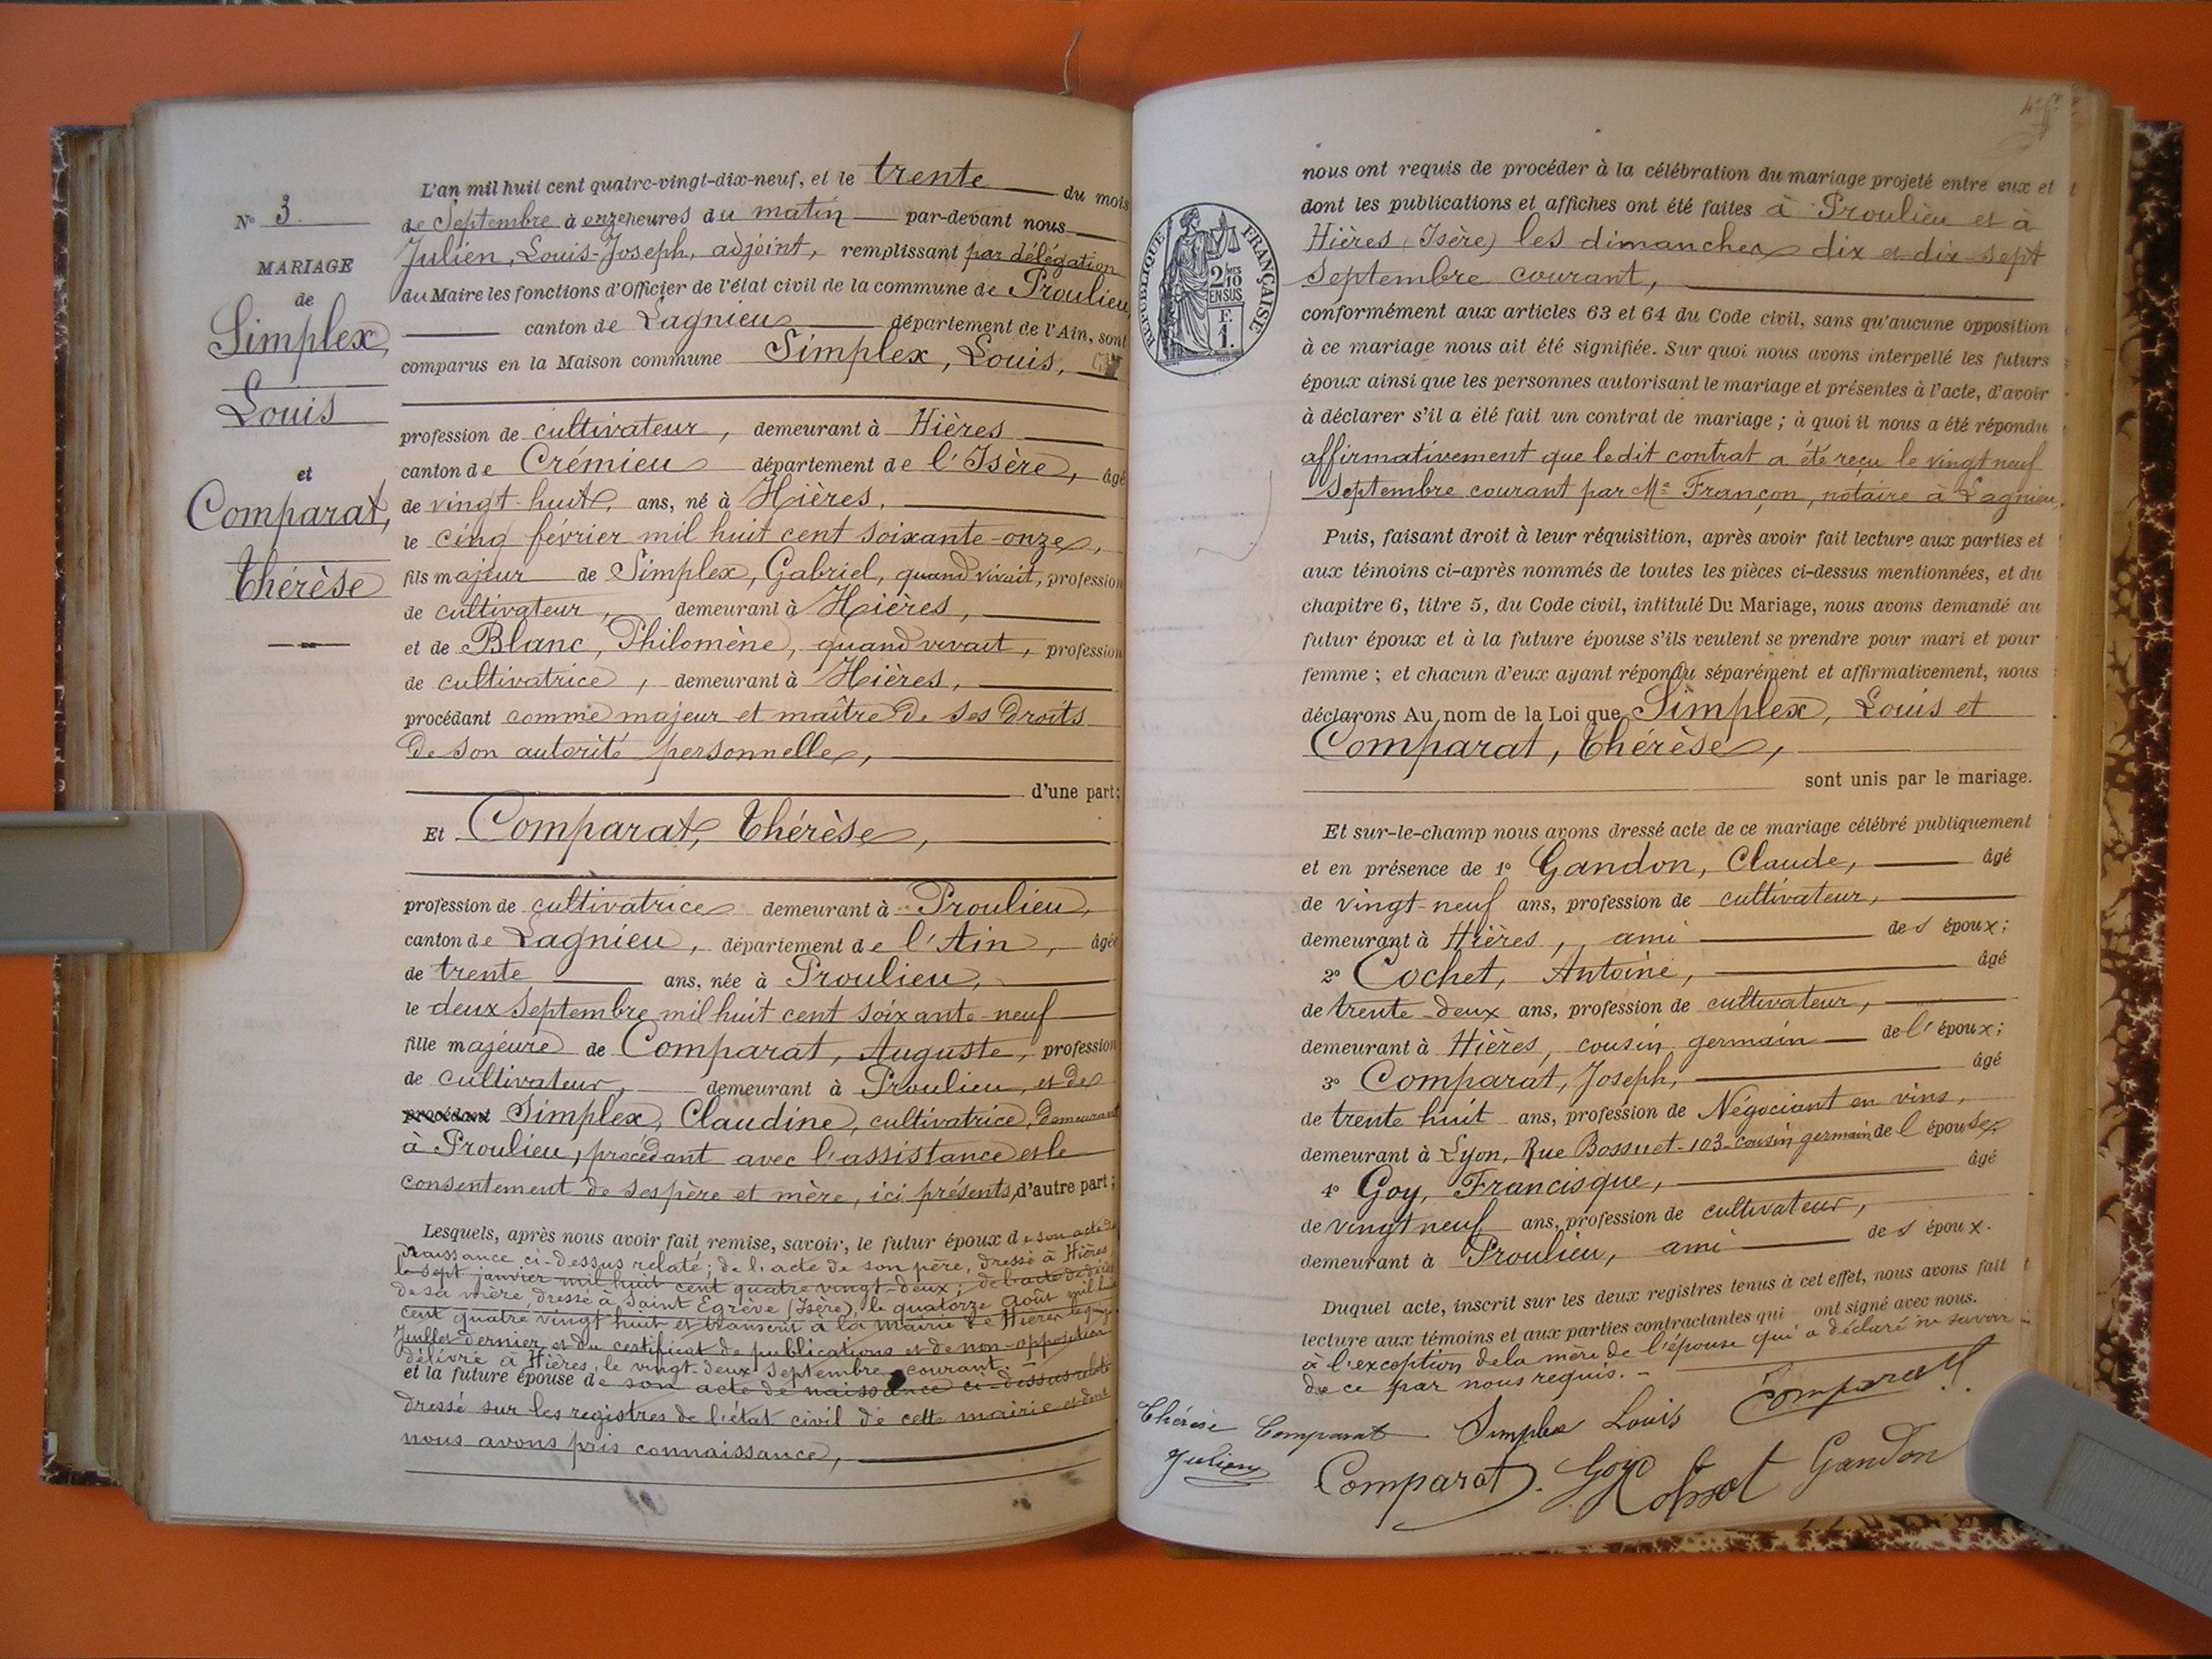 N° 3.
MARIAGE
de
Simplex,
Louis
et
Comparat,
Thérèse
L'an mil huit cent quatre-vingt-dix-neuf, et le trente du mois
de Septembre à onze heures du matin par-devant nous
Julien, Louis-Joseph, adjoint, remplissant par délégation
du Maire les fonctions d'Officier de l'état civil de la commune de Proulieu,
canton de Lagnieu département de l'Ain, sont
comparus en la Maison commune Simplex, Louis,
profession de cultivateur, demeurant à Hières
canton de Crémieu département de l'Isère, âgé
de vingt-huit, ans, né à Hières,
le cinq février mil huit cent soixante-onze,
fils majeur de Simplex, Gabriel, quand vivait, profession
de cultivateur, demeurant à Hières,
et de Blanc, Philomène, quand vivait, profession
de cultivatrice, demeurant à Hières,
procédant comme majeur et maître de ses droits
de son autorité personnelle,
d'une part;
Et Comparat, Thérèse,
profession de cultivatrice demeurant à Proulieu,
canton de Lagnieu, département de l'Ain, âgée
de trente ans, née à Proulieu,
le deux Septembre mil huit cent soixante-neuf
fille majeure de Comparat, Auguste, profession
de cultivateur, demeurant à Proulieu, et de
procédant Simplex, Claudine, cultivatrice, demeurant
à Proulieu, procédant avec l'assistance et le
consentement de ses père et mère, ici présents, d'autre part;
Lesquels, après nous avoir fait remise, savoir, le futur époux de son acte de
naissance ci-dessus relaté; de l'acte de son père, dressé à Hières
le sept janvier mil huit cent quatre vingt-deux; de l'acte de décès
de sa mère, dressé à Saint Egrève (Isère), le quatorze Août mil huit
cent quatre vingt huit et transcrit à la mairie de Hières le
Juillet dernier et du certificat de publications et de non-opposition
délivré à Hières, le vingt-deux Septembre courant.
et la future épouse de son acte de naissance ci-dessus relaté
dressé sur les registres de l'état civil de cette mairie et dont
nous avons pris connaissance,
RÉPUBLIQUE FRANÇAISE
2 10 MES
EN SUS
F.
1.
nous ont requis de procéder à la célébration du mariage projeté entre eux et
dont les publications et affiches ont été faites à Proulieu et à
Hières (Isère) les dimanches dix et dix-sept
Septembre courant,
conformément aux articles 63 et 64 du Code civil, sans qu'aucune opposition
à ce mariage nous ait été signifiée. Sur quoi nous avons interpellé les futurs
époux ainsi que les personnes autorisant le mariage et présentes à l'acte, d'avoir
à déclarer s'il a été fait un contrat de mariage; à quoi il nous a été répondu
affirmativement que ledit contrat a été reçu le vingt neuf
Septembre courant par Me Françon, notaire à Lagnieu,
Puis, faisant droit à leur réquisition, après avoir fait lecture aux parties et
aux témoins ci-après nommés de toutes les pièces ci-dessus mentionnées, et du
chapitre 6, titre 5, du Code civil, intitulé Du Mariage, nous avons demandé au
futur époux et à la future épouse s'ils veulent se prendre pour mari et pour
femme; et chacun d'eux ayant répondu séparément et affirmativement, nous
déclarons Au nom de la Loi que Simplex, Louis et
Comparat, Thérèse,
sont unis par le mariage.
Et sur-le-champ nous avons dressé acte de ce mariage célébré publiquement
et en présence de 1° Gandon, Claude, âgé
de vingt-neuf ans, profession de cultivateur,
demeurant à Hières, ami des époux;
2° Cochet, Antoine, âgé
de trente-deux ans, profession de cultivateur,
demeurant à Hières, cousin germain de l'époux;
3° Comparat, Joseph, âgé
de trente huit ans, profession de Négociant en vins,
demeurant à Lyon, Rue Bossuet-103-cousin germain de l'épouse
4° Goy, Francisque, âgé
de vingt neuf ans, profession de cultivateur,
demeurant à Proulieu, ami des époux.
Duquel acte, inscrit sur les deux registres tenus à cet effet, nous avons fait
lecture aux témoins et aux parties contractantes qui ont signé avec nous.
à l'exception de la mère de l'épouse qui a déclaré ne savoir
de ce par nous requis.
Thérèse Comparat Simplex Louis Comparat
Julien Comparat Goy Cochet Gandon